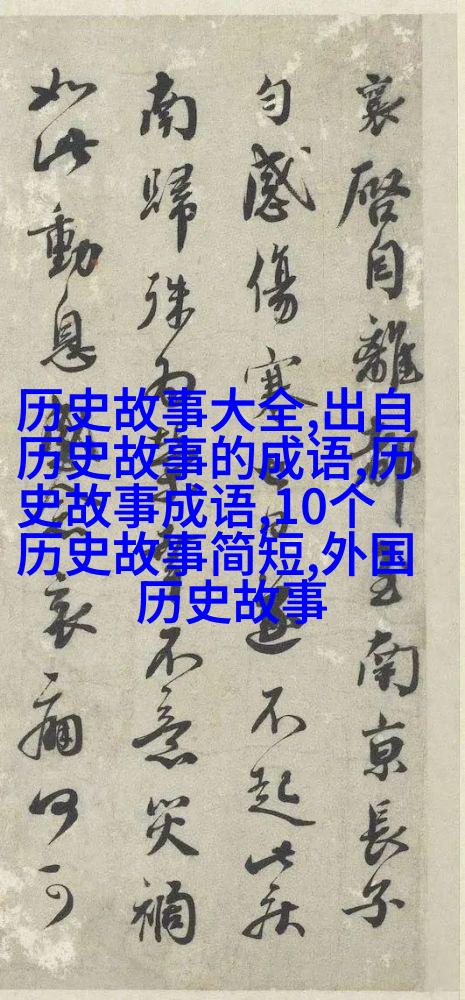 历史故事大全,出自
历史故事的成语,历
史故事成语, 10个
历史故事简短,外国
历史故事
襄啓自離都至南京長子
匀感傷寒日遂不起此疾
南歸殊為不意災禍
如此動息哀痛何可